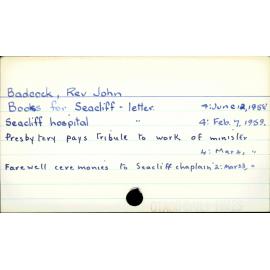 Badcock, Rev John
Books for Seacliff - letter 4: June 12, 1958
Seacliff hospital " 4: Feb. 7, 1959.
Presbytery pays tribute to work of minister
4: Mar 2, "
Farewell ceremonies to Seacliff chaplain 2: Mar 23, "